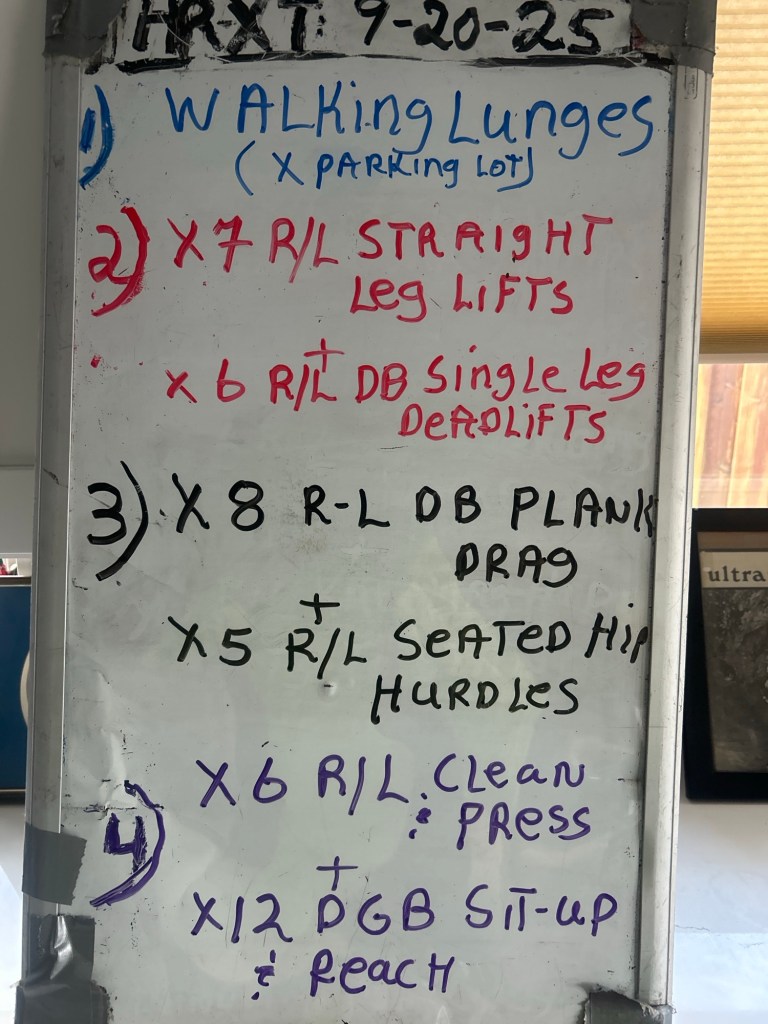 HRXT: 9-20-25
1) WALKing Lunges
(X PARKing LOT)
2) X7 R/L STRAIgHT
Leg LiFTS
+
x 6 R/L DB Single Leg
DeADLiFTS
3) X 8 R-L DB PLANK
DRAg
+
X5 R/L SeATeD Hip
HURDLes
4) X6 R/L CLeaN
& PRess
+
X12 DGB SiT-up
& ReacH
ultra